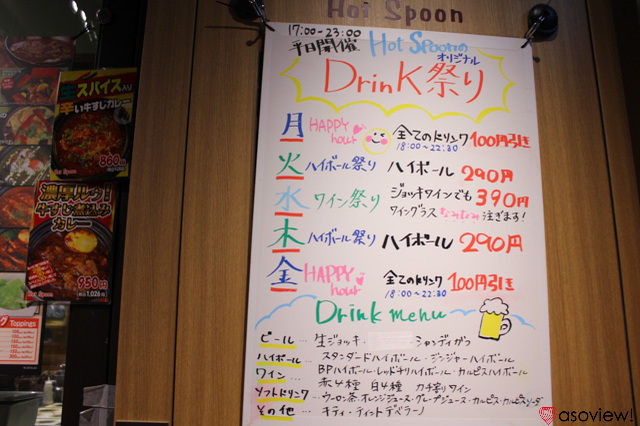 Hot Spoon
17:00-23:00
平日開催
Hot Spoonの
オリジナル
Drink祭り
月 HAPPY hour 全てのドリンク 100円引き
18:00~22:30
火 ハイボール祭り ハイボール 290円
水 ワイン祭り ジョッキワインでも 390円
ワイングラス なみなみ注ぎます!
木 ハイボール祭り ハイボール 290円
金 HAPPY hour 全てのドリンク 100円引き
18:00~22:30
Drink menu
ビール… 生ジョッキ シャンディガフ
ハイボール… スタンダードハイボール・ジンジャーハイボール
BPハイボール・レッドチリハイボール・カルピスハイボール
ワイン… 赤4種 白4種 カチ割りワイン
ソフトドリンク… ウーロン茶 オレンジジュース・グレープジュース・カルピス・カルピスソーダ
その他…
生スパイス入り
辛い牛すじカレー
860
Hot Spoon
濃厚ルウ!
牛すじ煮込み
カレー
950円
Hot Spoon
Toppings
asoview!